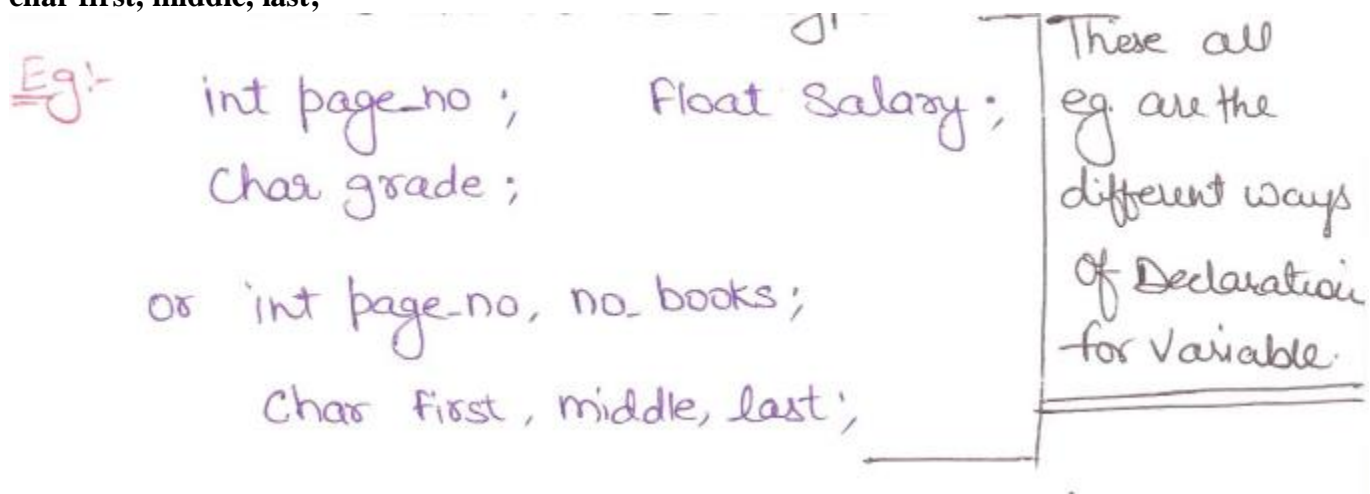 char first, middle, last;
Eg:- int page_no ; Float Salary ;
Char grade ;
or int page_no, no_books ;
Char First, middle, last ;
These all
eg. are the
different ways
Of Declaration
for Variable.